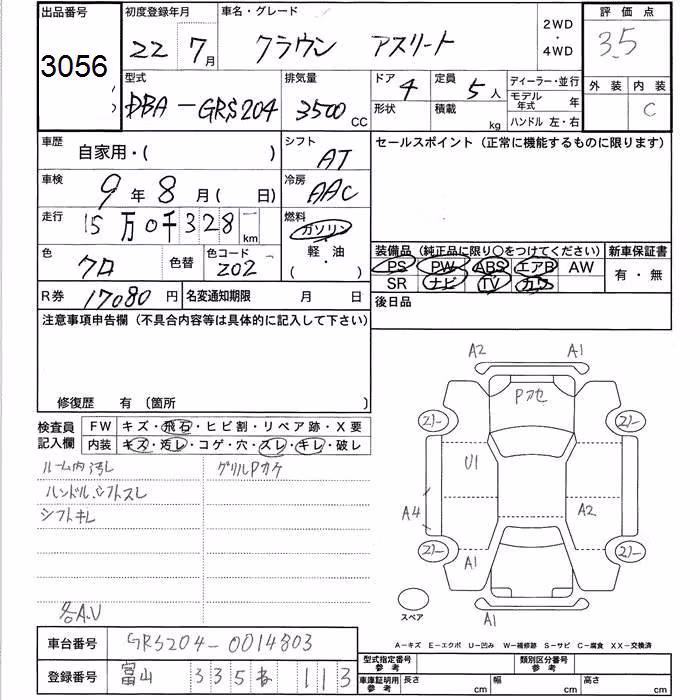 出品番号 初度登録年月 車名・グレード 2WD・4WD 評価点
3056 22 7月 クラウン アスリート 3.5
型式 排気量 ドア 4 定員 5人 ディーラー・並行 外装 内装
DBA-GRS204 3500cc 形状 積載 kg モデル年式 年 C
ハンドル 左・右
車歴 自家用・( ) シフト AT セールスポイント (正常に機能するものに限ります)
車検 9年8月( 日) 冷房 AAC
走行 15万0千328km 燃料 ガソリン
軽・油
( )
色 クロ 色替 色コード 202
装備品 (純正品に限り○をつけてください) 新車保証書
PS PW ABS エアB AW 有・無
SR ナビ TV カワ
R券 17080円 名変通知期限 月 日 後日品
注意事項申告欄 (不具合内容等は具体的に記入して下さい)
修復歴 有 (箇所 )
検査員記入欄 FW キズ・飛石・ヒビ割・リペア跡・X要
内装 キズ・汚レ・コゲ・穴・スレ・キレ・破レ
ルーム内汚レ グリルPカケ
ハンドル、シフトスレ
シフトキレ
各A.U
A2 A1
Pカセ
U1
A4 A2
A1
A1
スペア
車台番号 GRS204-0014803
登録番号 富山 335 113
A-キズ E-エクボ U-凹み W-補修跡 S-サビ C-腐食 XX-交換済
型式指定番号 参考 類別区分番号 参考
車庫証明用 参考 長さ cm 幅 cm 高さ cm